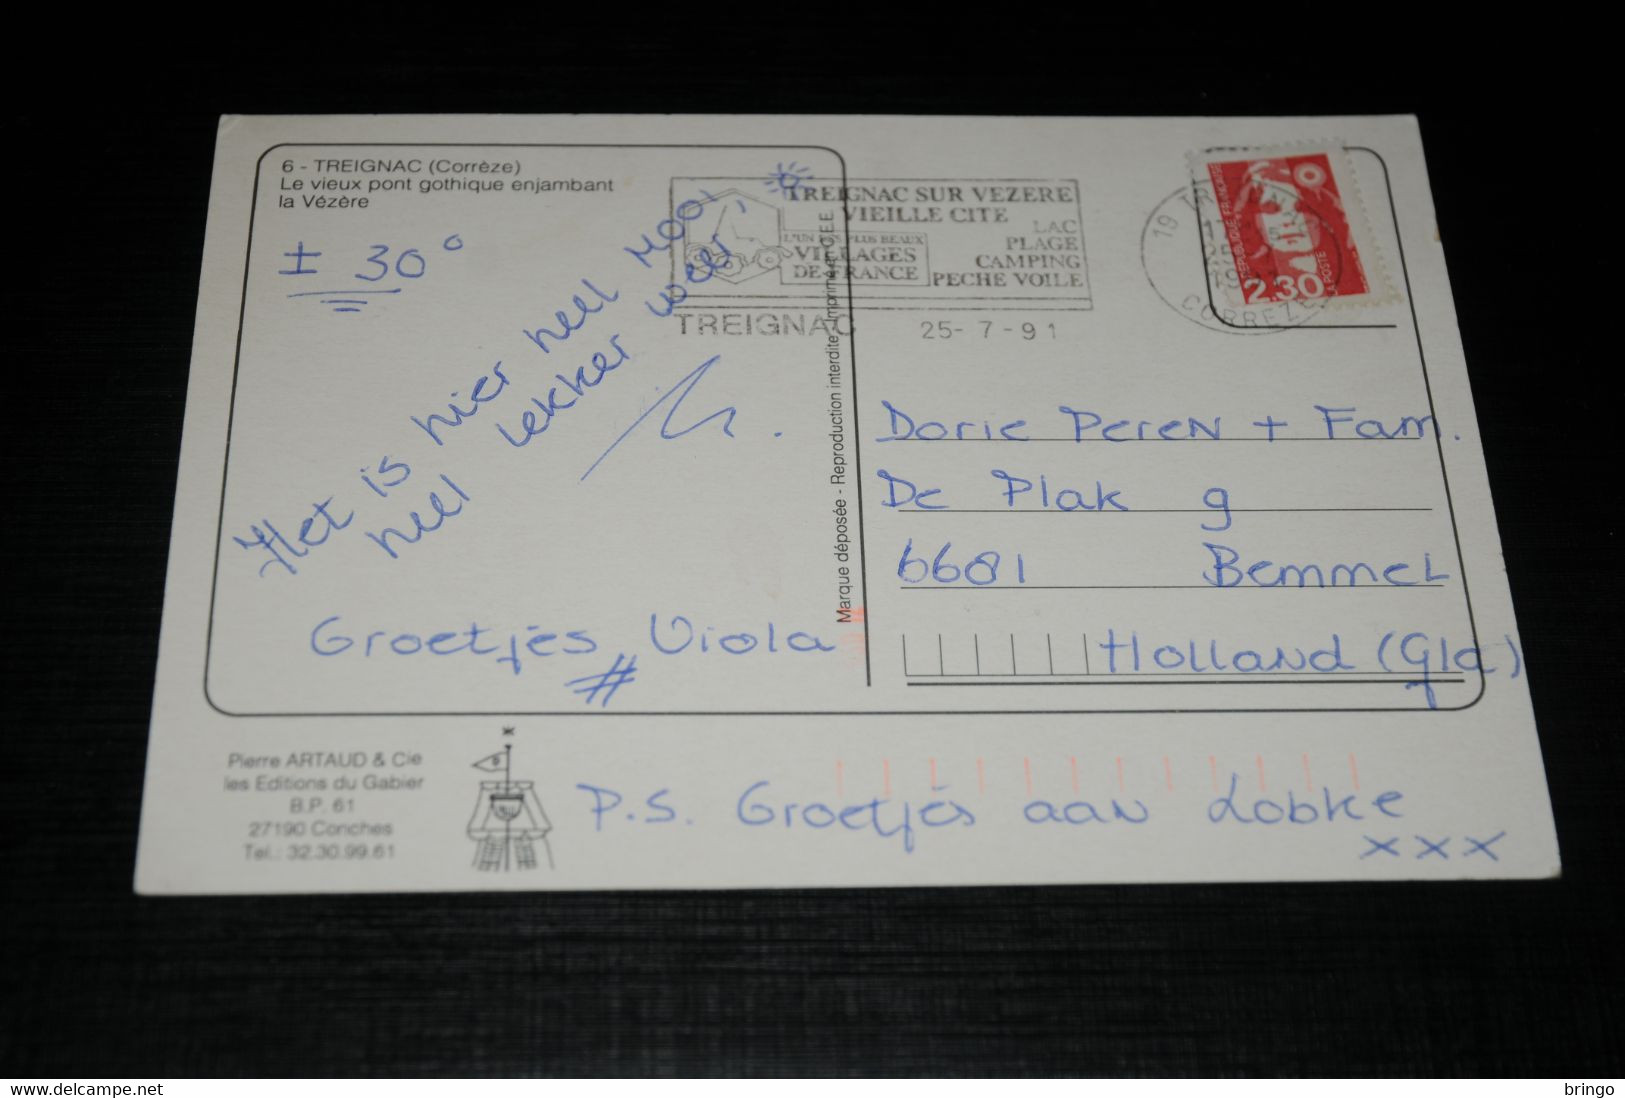 6 - TREIGNAC (Corrèze)
Le vieux pont gothique enjambant
la Vézère
± 30°
Het is hier heel mooi,
heel lekker weer,
Groetjes Viola
TREIGNAC SUR VEZERE
VIEILLE CITE
L'UN DES PLUS BEAUX
VILLAGES
DE FRANCE
LAC
PLAGE
CAMPING
PECHE VOILE
TREIGNAC 25-7-91
19 TREIGNAC
CORREZE
REPUBLIQUE FRANÇAISE
LA POSTE
2,30
Marque déposée - Reproduction interdite - Imprimé en C.E.E.
Dorie Peren + Fam.
De Plak 9
6681 Bemmel
Holland (Gld)
Pierre ARTAUD & Cie
les Editions du Gabier
B.P. 61
27190 Conches
Tel.: 32.30.99.61
P.S. Groetjes aan Lobke
xxx
delcampe.net
bringo